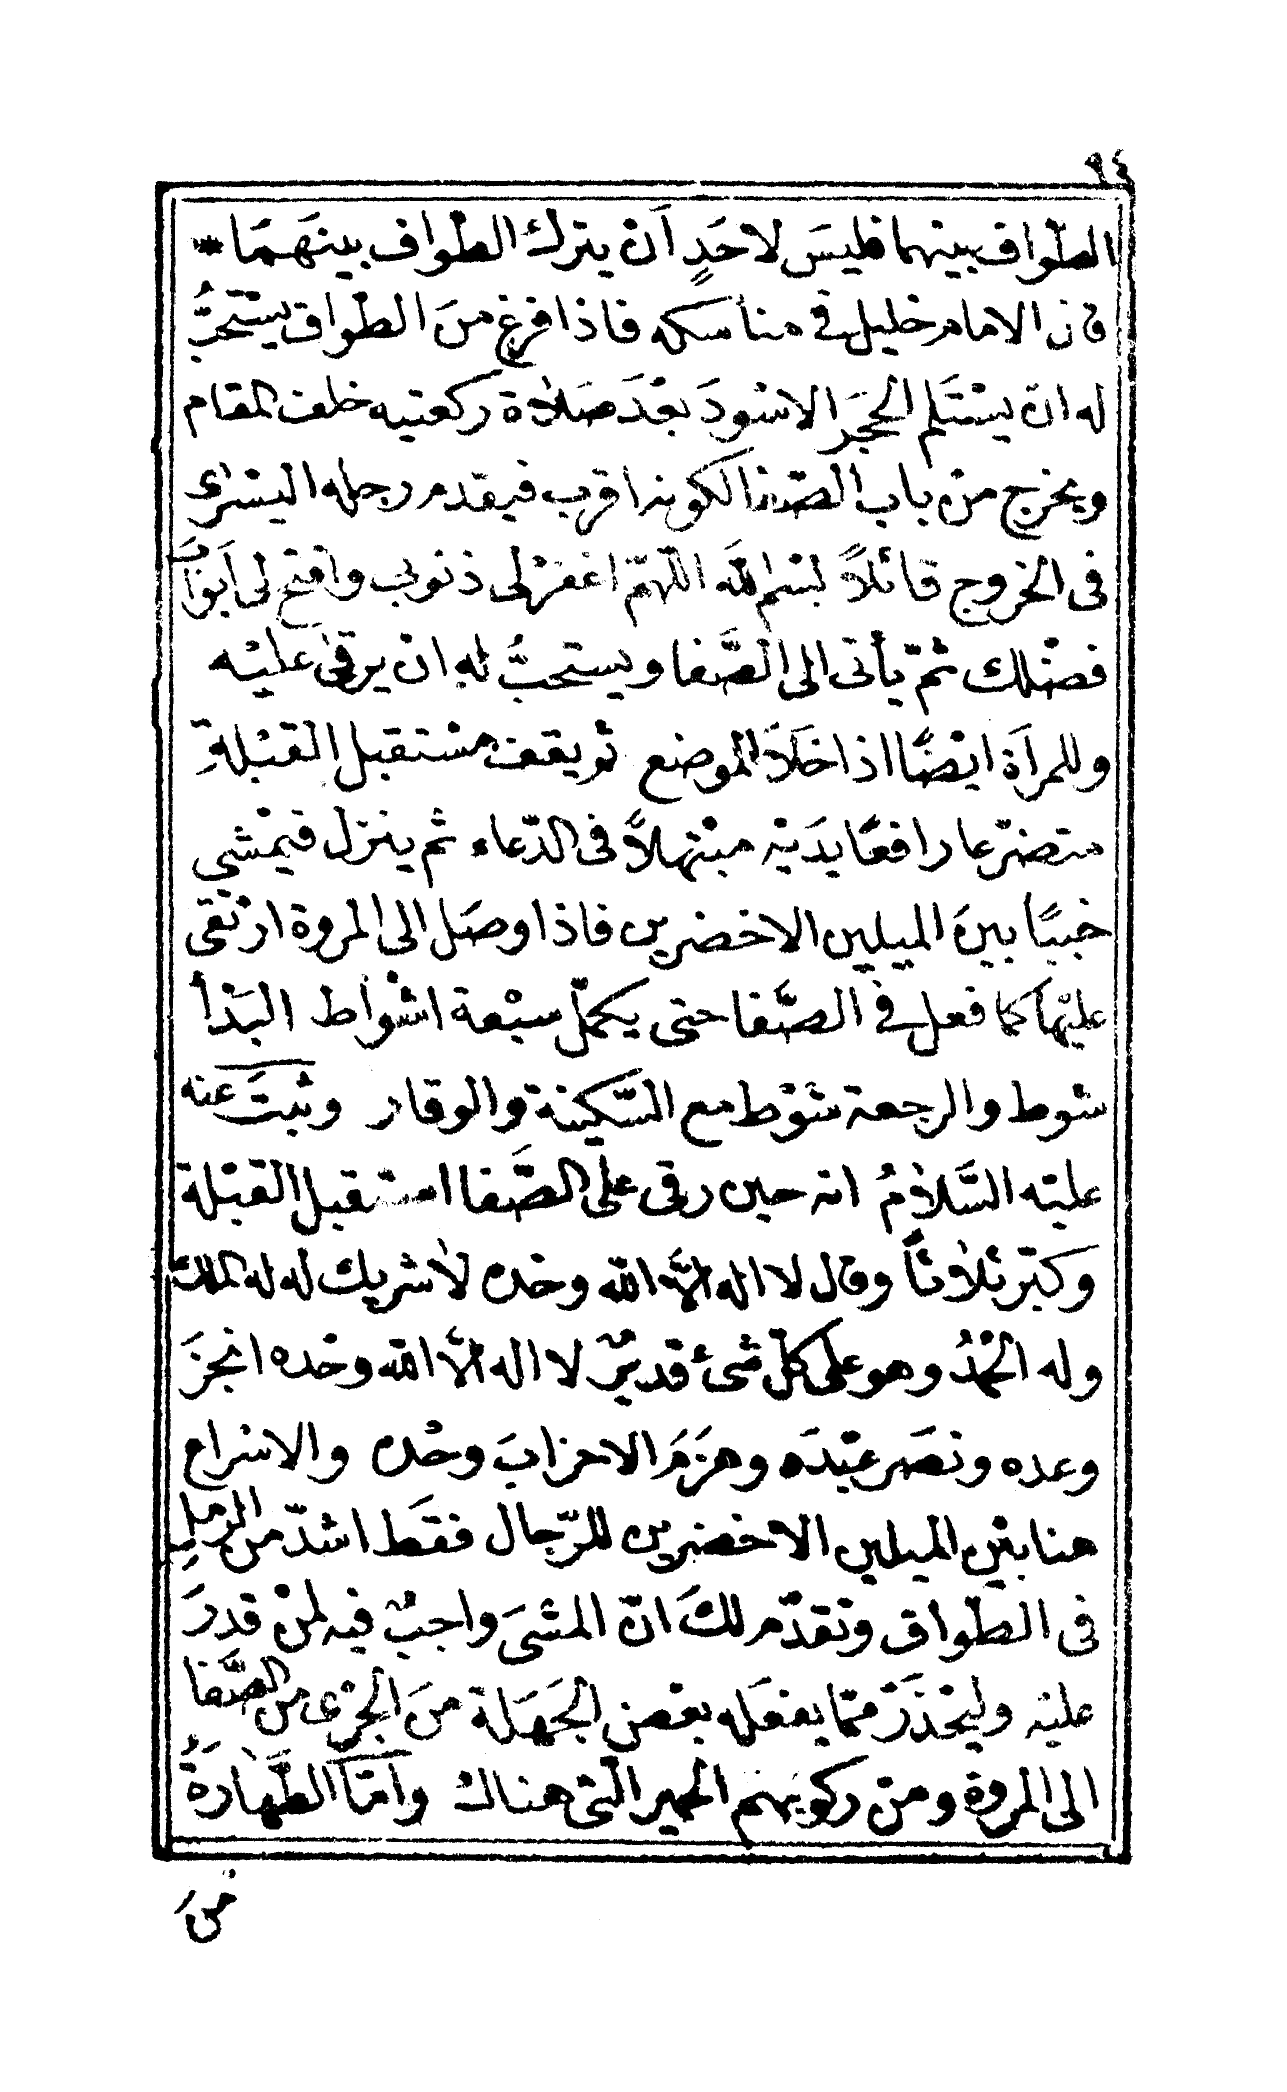 ٩٤
الطواف بينهما فليسَ لاحَدٍ اَنْ يترك الطواف بينَهمَا *
قال الامام خليل فى مناسكه فاذا فرغ منَ الطواف يسْتحبُّ
له ان يسْتَلم الحجَر الاسْودَ بعْدَ صَلاة ركعتيه خلف المقام
ويخرج منْ باب الصّفا لكونه اقرب فيقدم رجله اليسْرى
فى الخروج قائلاً بسْم اللّٰه اللّٰهمّ اغفرْ لى ذنوبى وافتح لى اَبوَابَ
فضْلك ثمّ يأتى الى الصَّفا ويستحبُّ له انْ يرقى عليْه
وللمرأة ايْضًا اذا خَلاَ الموضع ثم يقف مسْتقبل القبْلةِ
متضرّعا رافعًا يدَيْه مبْتهلاً فى الدّعاء ثم ينزل فيمْشى
خببًا بينَ الميلين الاخضرين فاذا وصَل الى المروة ارْتقى
عليْها كما فعل فى الصَّفا حتى يكمّل سبْعة اشْواط البَدْأ
شوط والرجعة شوْط مع السَّكينة والوقار وثبتَ عنه
عليْه السَّلامُ انه حين رقى على الصَّفا استقبل القبْلة
وكبّر ثلاثاً وقال لا اله الاَّ اللّٰه وحْده لاَ شريك له له الملك
وله الحْمدُ وهو على كلّ شىء قديرٌ لا اله الاَّ اللّٰه وحْده انجزَ
وعده ونصَر عبْدَه وهزَمَ الاحزابَ وحْده والاسْراع
هنا بيْن الميلين الاخضرين للرّجال فقَط اشدّ من الرملِ
فى الطواف وتقدّم لكَ انّ المشىَ واجبٌ فيه لمنْ قدرَ
عليْه وليحْذَرْ ممّا يفعَله بعْض الجهَلة منَ الجرْى من الصَّفا
الى المروة ومنْ ركوبهمْ الحمير التى هناكْ وأمّا الطَّهارَةُ
منَ